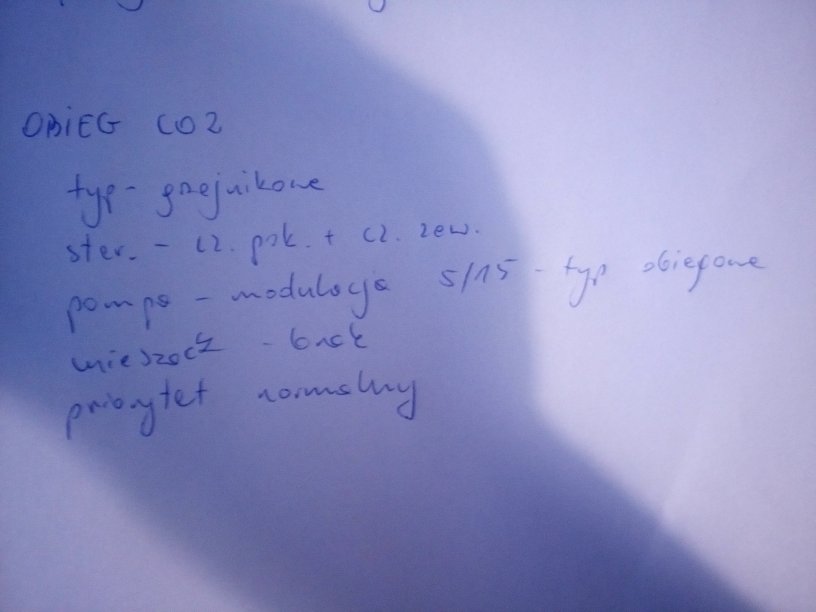 OBIEG CO2
typ - grzejnikowe
ster. - cz. pok. + cz. zew.
pompa - modulacja 5/15 - typ obiegowe
mieszacz - brak
priorytet normalny